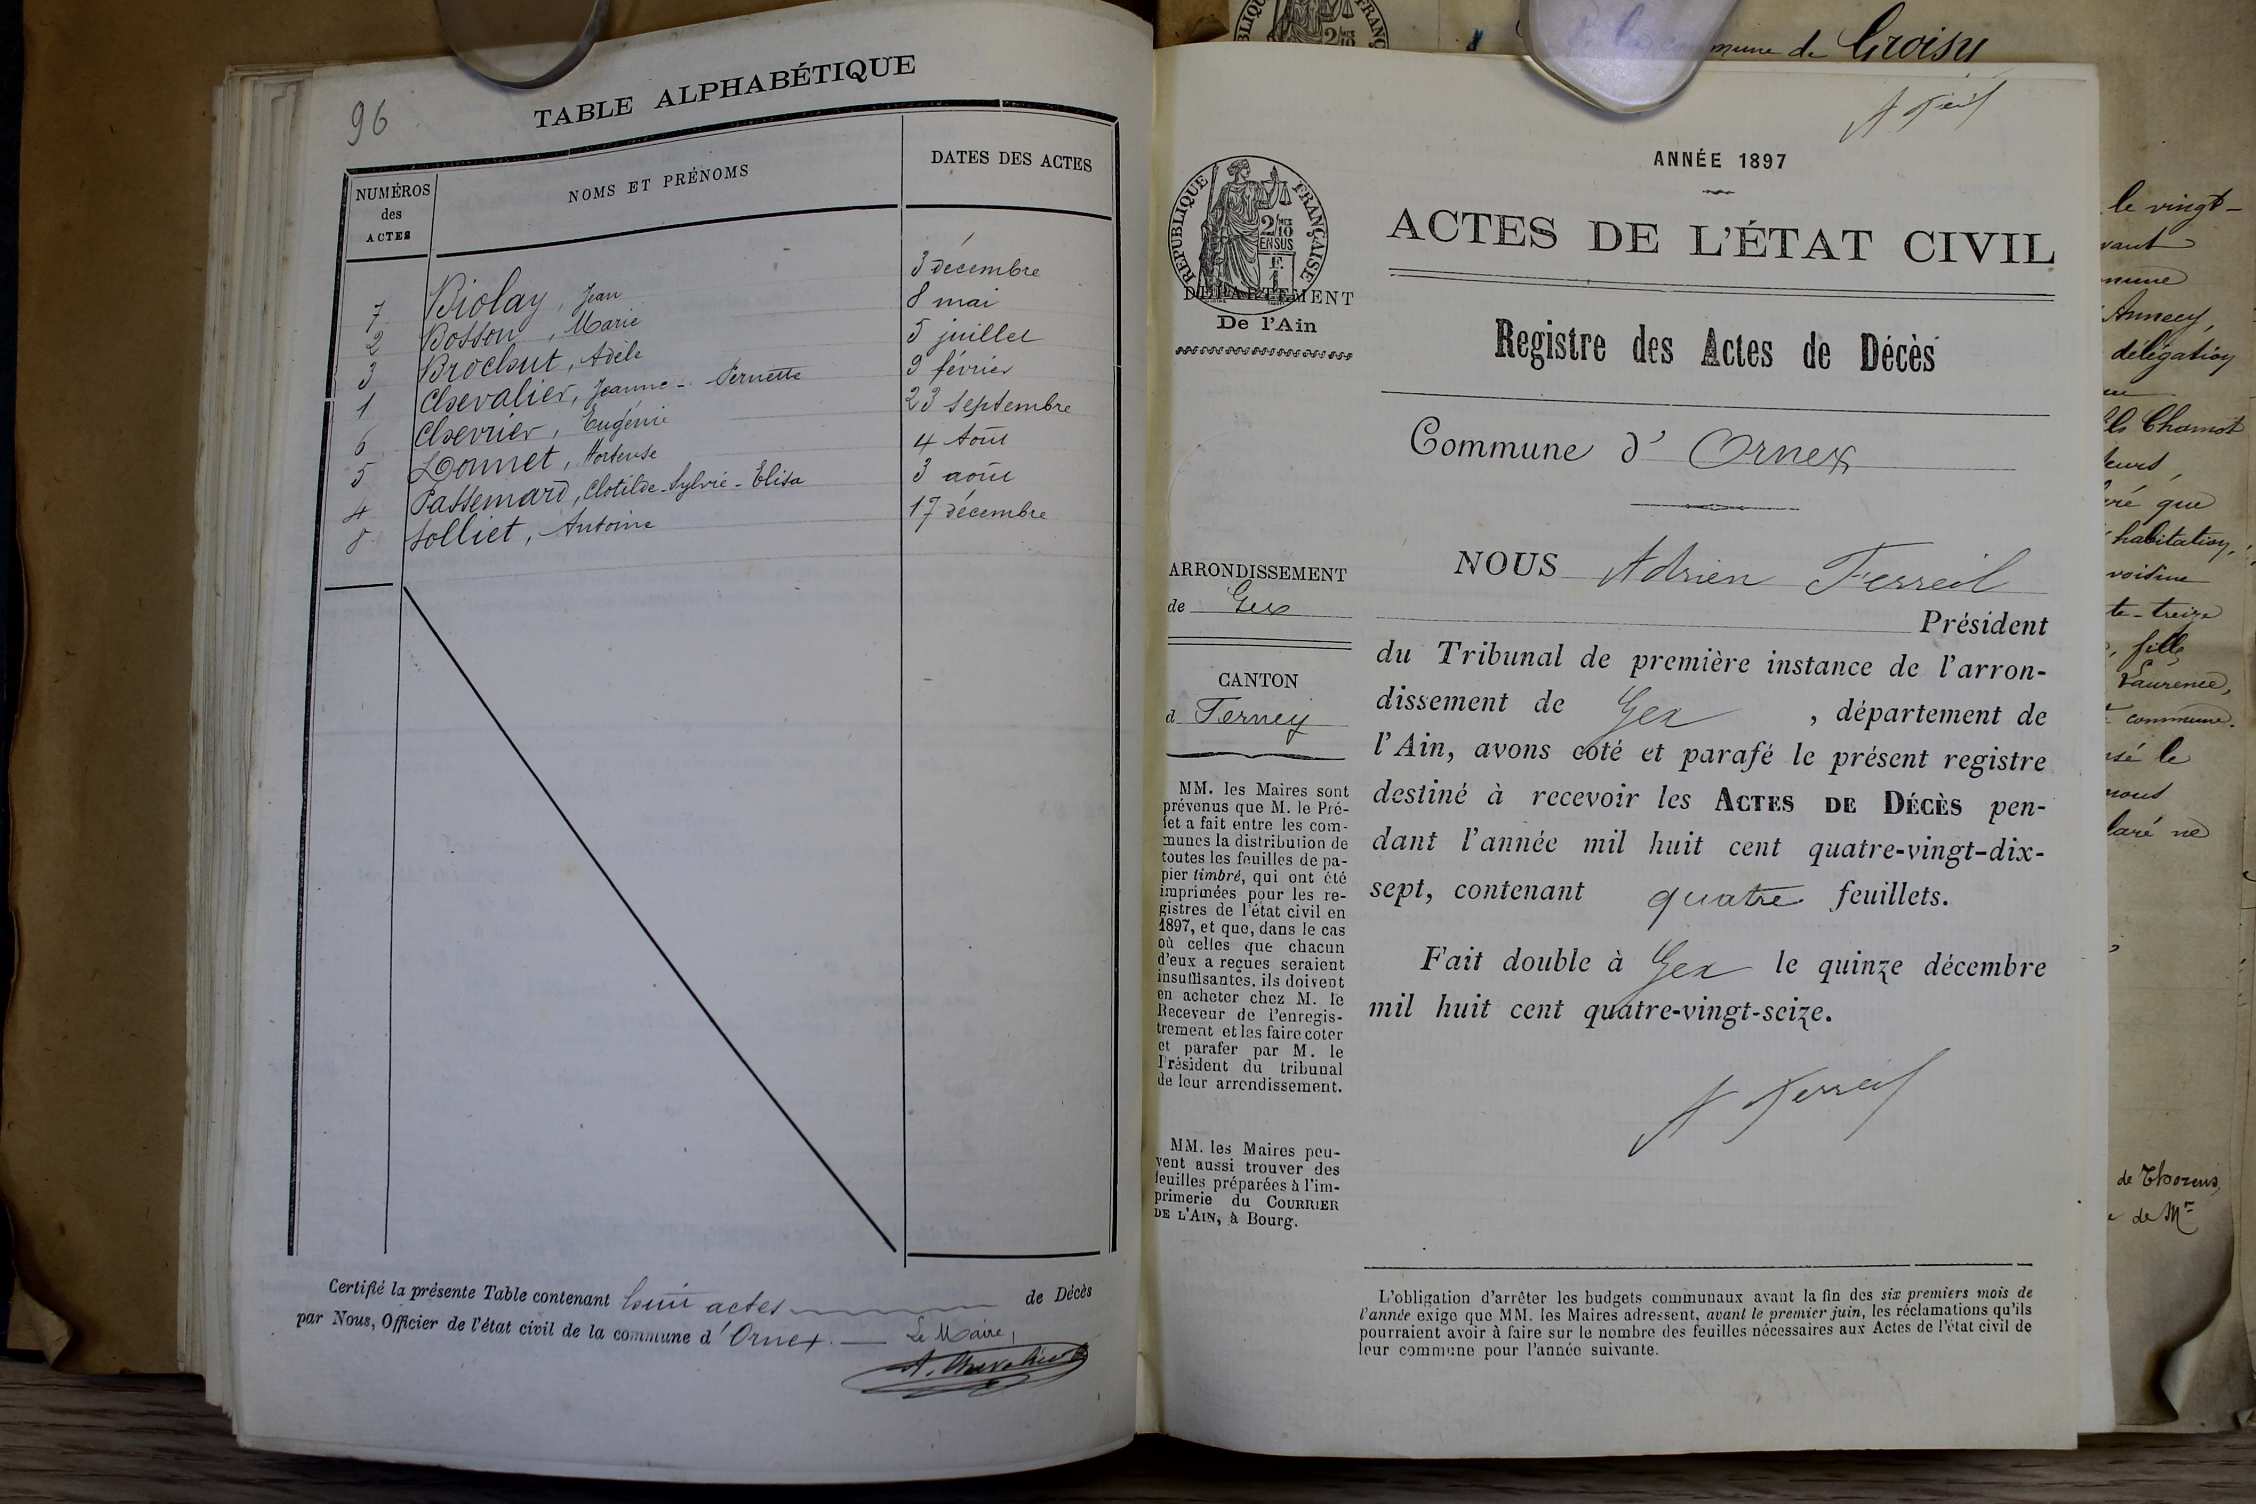 96
TABLE ALPHABÉTIQUE
NUMÉROS
des
ACTES
NOMS ET PRÉNOMS
DATES DES ACTES
7 Biolay, Jean 3 décembre
2 Bosson, Marie 8 mai
3 Brochut, Adèle 5 juillet
1 Chevalier, Jeanne-Pernette 9 février
6 Chevrier, Eugénie 23 septembre
5 Donnet, Hortense 4 Août
4 Passemard, Clotilde-Sylvie-Elisa 3 août
8 Solliet, Antoine 17 décembre
Certifié la présente Table contenant huit actes de Décès
par Nous, Officier de l'état civil de la commune d'Ornex.
Le Maire,
A. Chevalier
ANNÉE 1897
RÉPUBLIQUE FRANÇAISE
2/10
EN SUS
DÉPARTEMENT
De l'Ain
ACTES DE L'ÉTAT CIVIL
Registre des Actes de Décès
Commune d' Ornex
ARRONDISSEMENT
de Gex
CANTON
d Ferney
MM. les Maires sont
prévenus que M. le Pré-
fet a fait entre les com-
munes la distribution de
toutes les feuilles de pa-
pier timbré, qui ont été
imprimées pour les re-
gistres de l'état civil en
1897, et que, dans le cas
où celles que chacun
d'eux a reçues seraient
insuffisantes, ils doivent
en acheter chez M. le
Receveur de l'enregis-
trement et les faire coter
et parafer par M. le
Président du tribunal
de leur arrondissement.
MM. les Maires peu-
vent aussi trouver des
feuilles préparées à l'im-
primerie du COURRIER
DE L'AIN, à Bourg.
NOUS Adrien Ferreil
Président
du Tribunal de première instance de l'arron-
dissement de Gex, département de
l'Ain, avons coté et parafé le présent registre
destiné à recevoir les ACTES DE DÉCÈS pen-
dant l'année mil huit cent quatre-vingt-dix-
sept, contenant quatre feuillets.
Fait double à Gex le quinze décembre
mil huit cent quatre-vingt-seize.
A Ferreil
L'obligation d'arrêter les budgets communaux avant la fin des six premiers mois de
l'année exige que MM. les Maires adressent, avant le premier juin, les réclamations qu'ils
pourraient avoir à faire sur le nombre des feuilles nécessaires aux Actes de l'état civil de
leur commune pour l'année suivante.
commune de Groisy
le vingt-
Annecy,
délégation
Chamot
que
habitation,
voisine
te-treize
fille
Laurence,
commune.
le
nous
laré ne
de Thorens,
de Mr